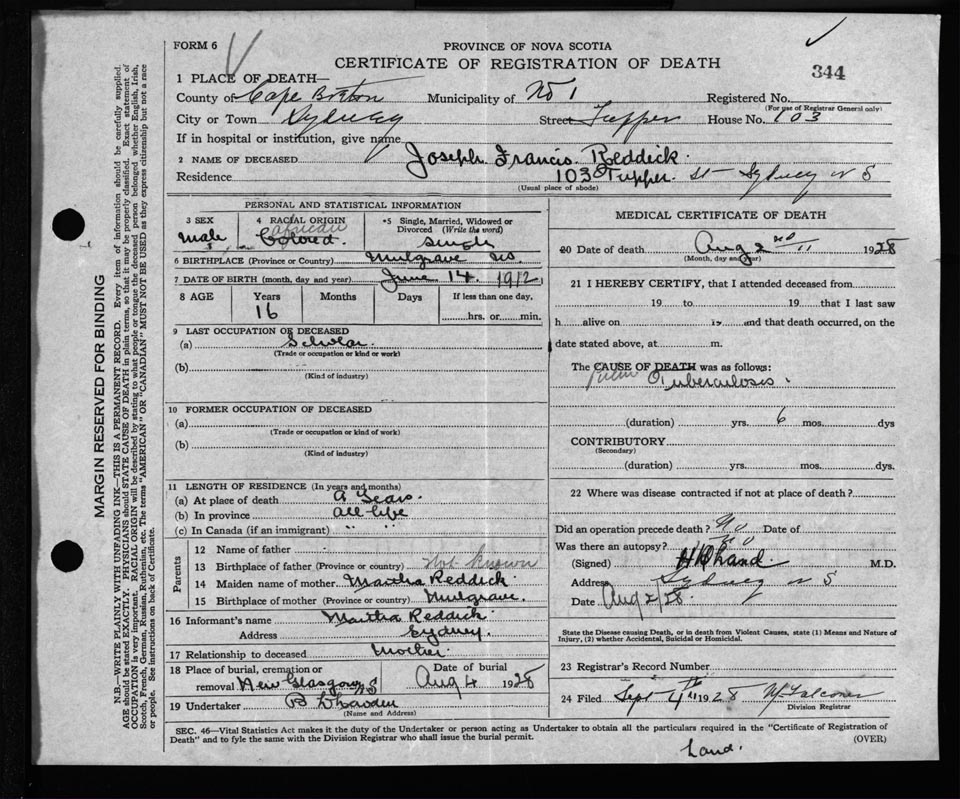 FORM 6
PROVINCE OF NOVA SCOTIA
CERTIFICATE OF REGISTRATION OF DEATH
344
1 PLACE OF DEATH—
County of Cape Breton Municipality of No 1 Registered No.
(For use of Registrar General only)
City or Town Sydney Street Tupper House No. 103
If in hospital or institution, give name
2 NAME OF DECEASED Joseph Francis Reddick.
Residence 103 Tupper St - Sydney N S
(Usual place of abode)
PERSONAL AND STATISTICAL INFORMATION
3 SEX Male
4 RACIAL ORIGIN african Colored.
5 Single, Married, Widowed or Divorced (Write the word) Single
6 BIRTHPLACE (Province or Country) Mulgrave N.S.
7 DATE OF BIRTH (month, day and year) June 14. 1912
8 AGE Years Months Days If less than one day,
16 hrs. or min.
9 LAST OCCUPATION OF DECEASED
(a) Scholar.
(Trade or occupation or kind or work)
(b)
(Kind of industry)
10 FORMER OCCUPATION OF DECEASED
(a)
(Trade or occupation or kind of work)
(b)
(Kind of industry)
11 LENGTH OF RESIDENCE (In years and months)
(a) At place of death Years.
(b) In province all life
(c) In Canada (if an immigrant) " "
Parents
12 Name of father
13 Birthplace of father (Province or country) Not Known
14 Maiden name of mother Martha Reddick.
15 Birthplace of mother (Province or country) Mulgrave.
16 Informant's name Martha Reddick.
Address Sydney.
17 Relationship to deceased Mother
18 Place of burial, cremation or removal New Glasgow N S
Date of burial Aug 4 1928
19 Undertaker
(Name and Address)
MEDICAL CERTIFICATE OF DEATH
20 Date of death Aug 2nd 1928
(Month, day and year)
21 I HEREBY CERTIFY, that I attended deceased from
19 to 19 that I last saw
h alive on 19 and that death occurred, on the
date stated above, at m.
The CAUSE OF DEATH was as follows:
Pulm Tuberculosis.
(duration) yrs. 6 mos. dys
CONTRIBUTORY
(Secondary)
(duration) yrs. mos. dys.
22 Where was disease contracted if not at place of death?
Did an operation precede death? No Date of
Was there an autopsy? No
(Signed) M.D.
Address Sydney N S
Date Aug 2/28.
State the Disease causing Death, or in death from Violent Causes, state (1) Means and Nature of
Injury, (2) whether Accidental, Suicidal or Homicidal.
23 Registrar's Record Number
24 Filed Sept 4th 1928 Falconer
Division Registrar
SEC. 46—Vital Statistics Act makes it the duty of the Undertaker or person acting as Undertaker to obtain all the particulars required in the "Certificate of Registration of
Death" and to fyle the same with the Division Registrar who shall issue the burial permit.
(OVER)
MARGIN RESERVED FOR BINDING
N.B.—WRITE PLAINLY WITH UNFADING INK—THIS IS A PERMANENT RECORD. Every item of information should be carefully supplied.
AGE should be stated EXACTLY. PHYSICIANS should STATE CAUSE OF DEATH in plain terms, so that it may be properly classified. Exact statement of
OCCUPATION is very important. RACIAL ORIGIN will be described by stating to what people or tongue the deceased person belonged whether English, Irish,
Scotch, French, German, Russian, Ruthenian, etc. The terms "AMERICAN" OR "CANADIAN" MUST NOT BE USED as they express citizenship but not a race
or people. See instructions on back of Certificate.